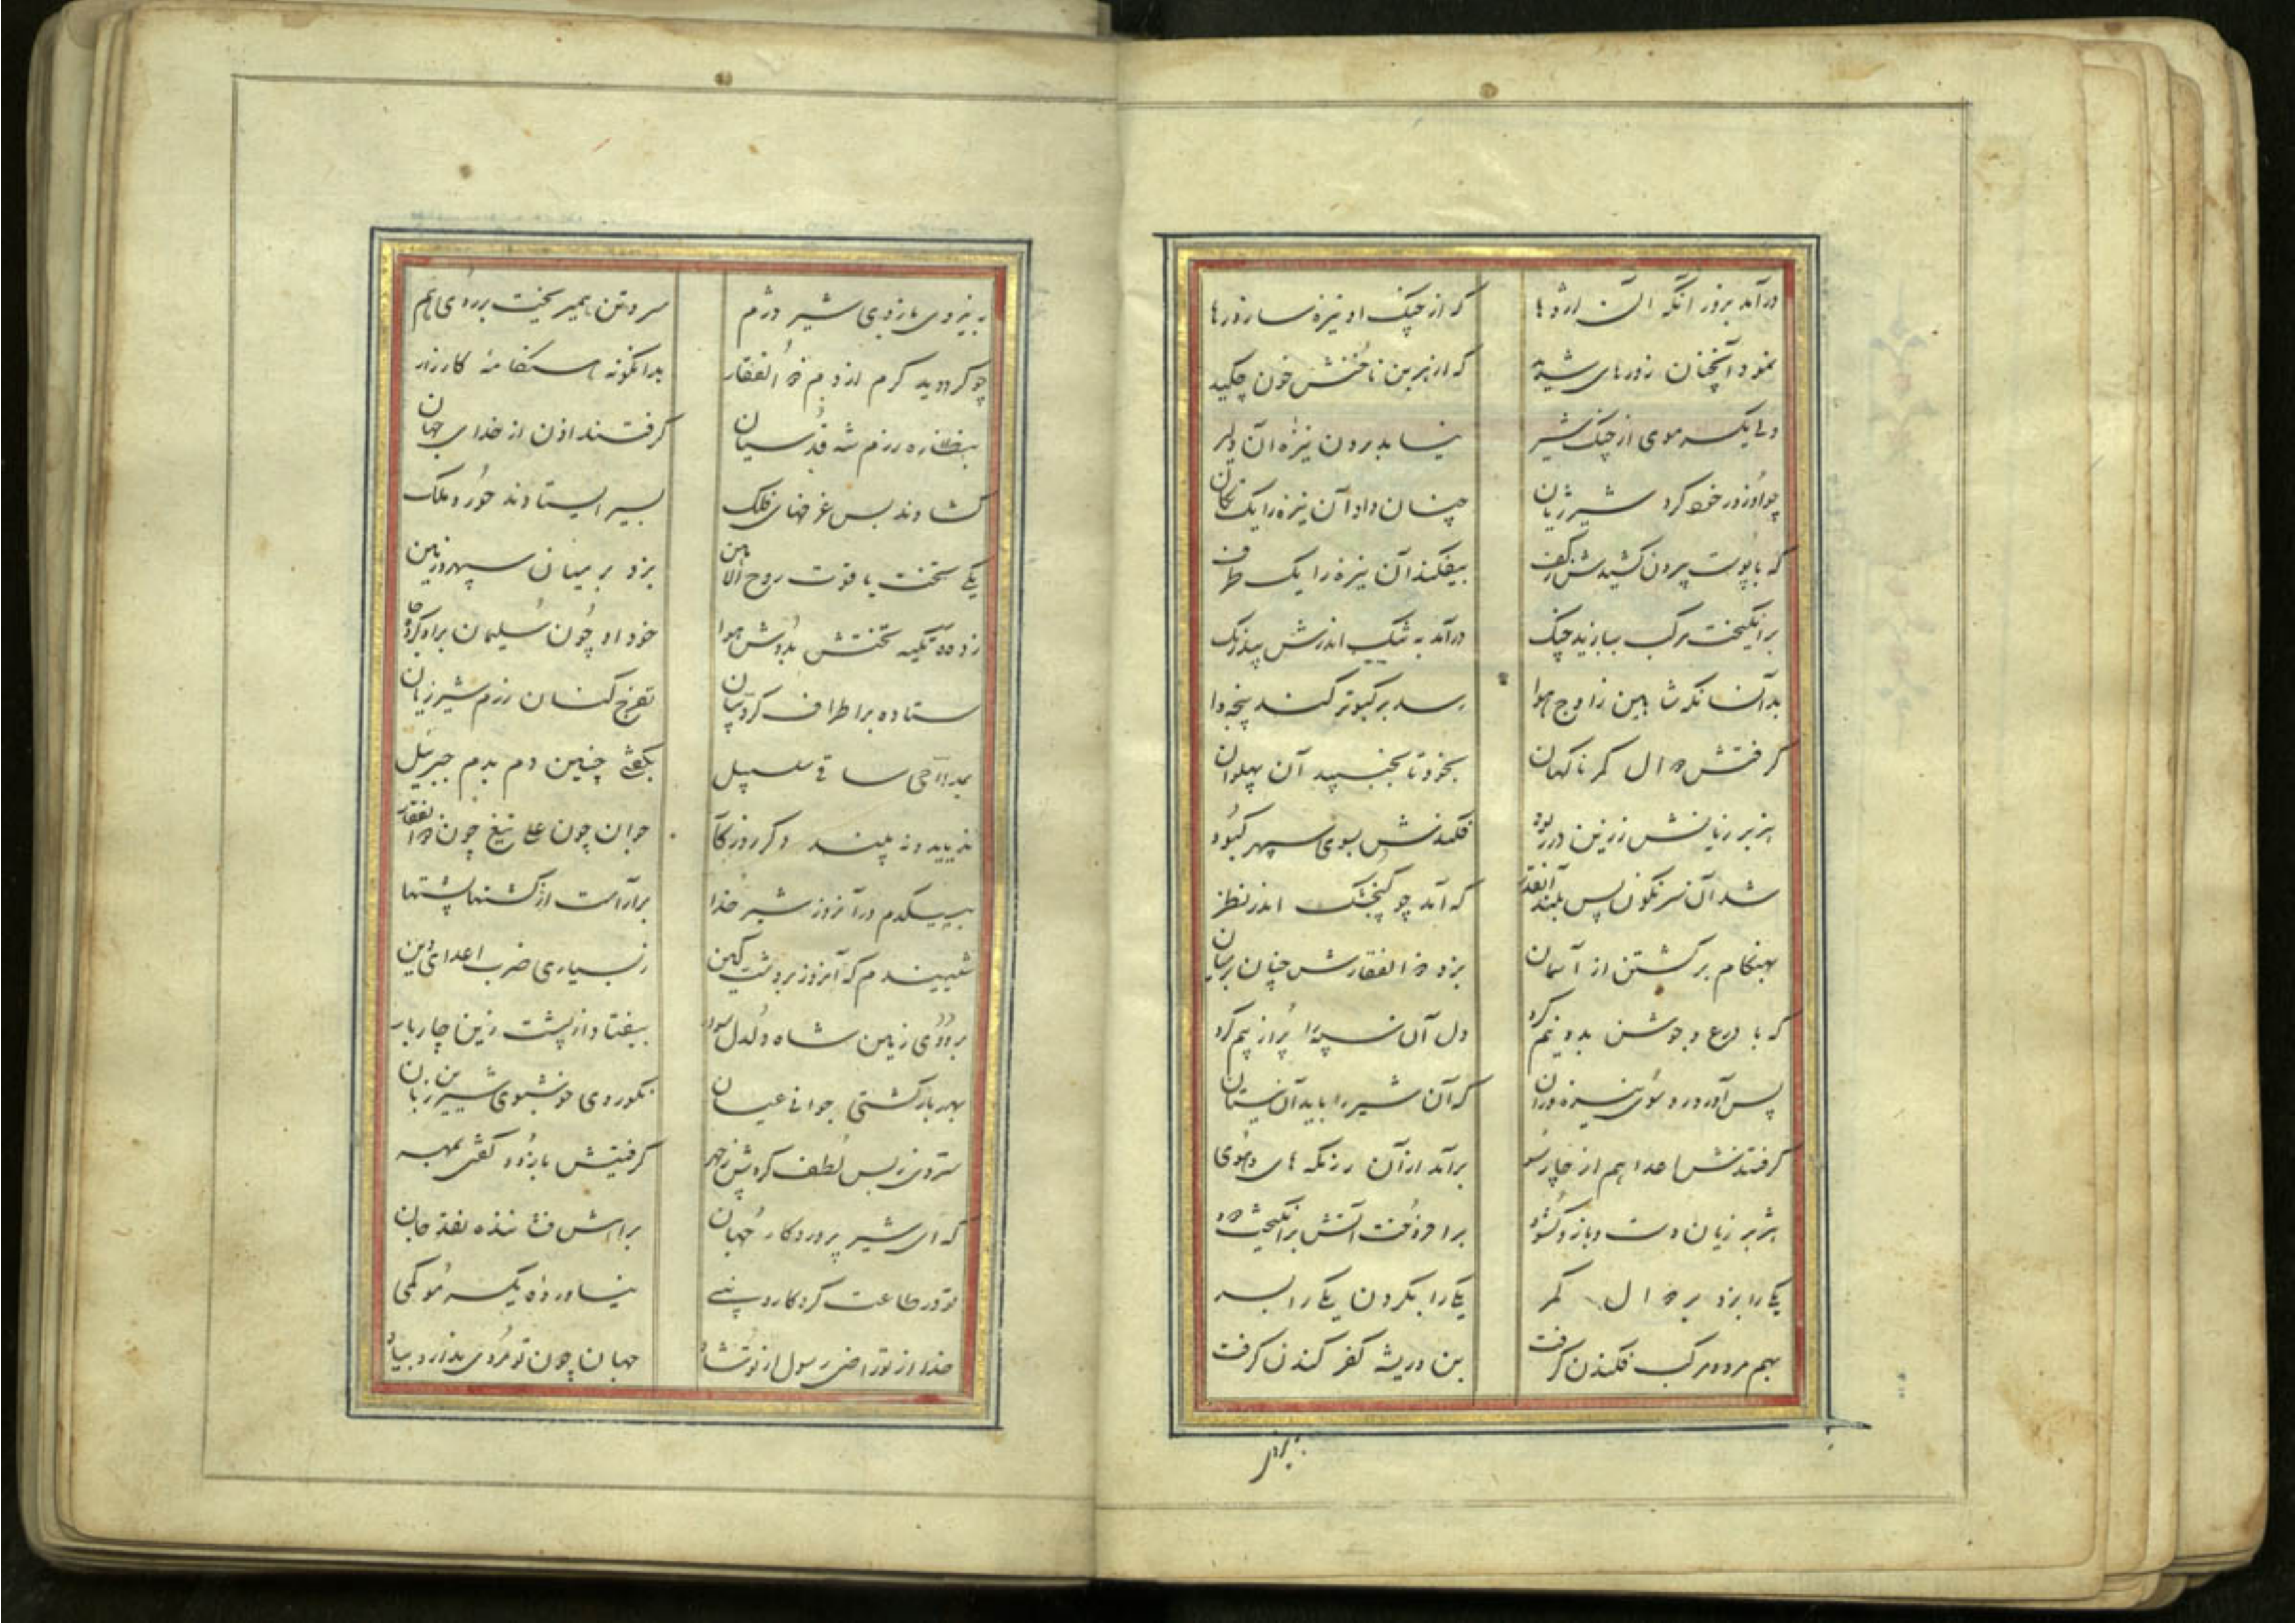 درآمد بزور آنگه آن اژدها که از چنگ او نیزه سازد رها
نمود آنچنان زورهای شدید که از زیر بن ناخنش خون چکید
ولی یکسر موی از چنگ شیر نیامد برون نیزه آن دلیر
چو او زور خود کرد شیر ژیان چنان داد آن نیزه را یک تکان
که با پوست بیرون کشیدش ز کف بیفکند آن نیزه را یک طرف
برانگیخت مرکب بیازید چنگ درآمد به تنگ اندرش بیدرنگ
بدآنسانکه شاهین ز اوج هوا رسد بر کبوتر کند پنجه وا
گرفتش دوال کمر ناگهان بخود تا بجنبید آن پهلوان
هزبر ژیانش ز زین در ربود فکندش بسوی سپهر کبود
شد آن سرنگون پس بلند آنقدر که آمد چو گنجشک اندر نظر
بهنگام برگشتن از آسمان بزد ذوالفقارش چنان بر میان
که با درع و جوشن بدو نیم کرد دل آن سپه را پر از بیم کرد
پس آورد رو سوی نیزه وران که آن شیر را باید آن نیستان
گرفتندش اعدا هم از چارسو برآمد از آن رزمگه های و هوی
هژبر ژیان دست و بازو گشود برافروخت آتش برانگیخت دود
یکی را بزد بر دوال کمر یکی را بگردن یکی را بسر
بهم مرد و مرکب فکندن گرفت بن و ریشه کفر کندن گرفت
به نیروی
به نیروی بازوی شیر دژم سر و تن همیریخت بر روی هم
چو گردید گرم از دم ذوالفقار بدانگونه هنگامه کارزار
بنظاره رزم شه قدسیان گرفتند اذن از خدای جهان
گشادند بس غرفهای فلک بسیر ایستادند حور و ملک
یکی تخت یاقوت روح الامین بزد بر میان سپهر و زمین
زده تکیه تختش بدوش هوا خود او چون سلیمان بر او کرده جا
ستاده بر اطراف کروبیان تفرج کنان رزم شیر ژیان
بمداحی ساقی سلسبیل بگفتی چنین دم بدم جبرئیل
ندیدند و نه بیند دگر روزگار جوان چون علی تیغ چون ذوالفقار
به بیکدم در آنروز شیر خدا برآراست از کشتها پشتها
شنیدم که آنروز بر دشت کین ز بسیاری ضرب اعدای دین
بروی زمین شاه دلدل سوار بیفتاد از پشت زین چار بار
بهر بار گشتی جوانی عیان نکوروی خوشبوی شیرین زبان
ستردی ز بس لطف گردش ز چهر گرفتیش بازو و گفتی بمهر
که ای شیر پروردگار جهان براهش فشاننده نقد جان
تو در طاعت کردگار و نبی نیاورده یکسر مو کمی
خدا از تو راضی رسول از تو شاد جهان چون تو مردی ندارد بیاد